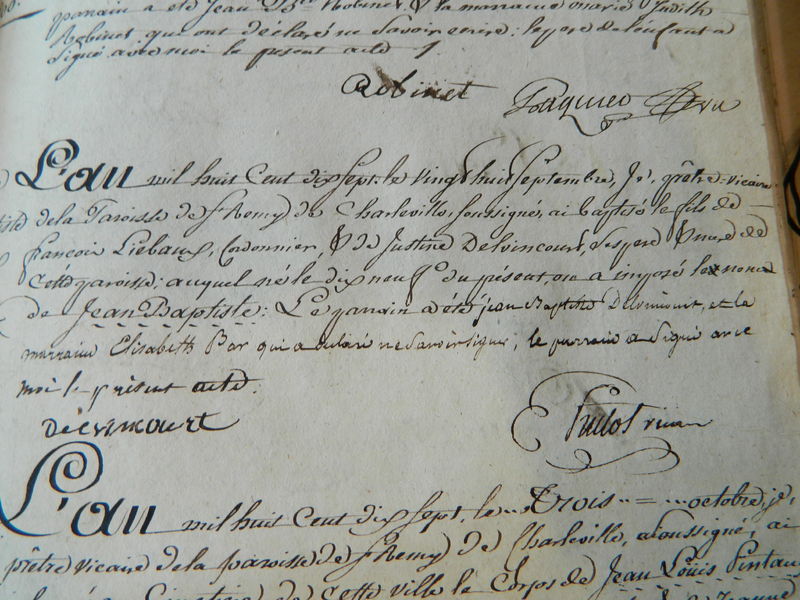 parain a été Jean Bte Robinet & la marraine Marie Judith
Robinet, qui ont declaré ne Savoir écrire: le pere de l'enfant a
Signé avec moi le présent acte /.
Robinet Paquier
L'an mil huit Cent dix Sept, le vingt huit Septembre, Je, prêtre vicaire
de la Paroisse de St Remy de Charleville, soussigné, ai baptisé le fils de
francois Liebaux, Cordonnier, & de Justine Devincourt, Ses pere & mere de
Cette paroisse; auquel né le dix neuf du présent, on a imposé le nom
de Jean Baptiste: Le parain a été jean Baptiste Devincourt, et la
marraine Elisabeth Bar qui a déclaré ne Savoir signer, le parrain a Signé avec
moi le présent acte.
Devincourt vicaire
L'an mil huit Cent dix Sept, le .. Trois .. = ... octobre, je,
prêtre vicaire de la paroisse de St Remy de Charleville, soussigné, ai
Cimetiere de Cette ville le Corps de Jean Louis Pintau
de Jeanne